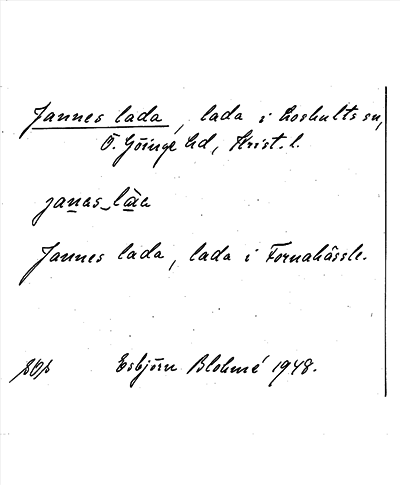 Jannes lada, lada i Loshults sn,
Ö. Göinge hd, Krist. l.
janas laa
Jannes lada, lada i Fornahässle.
Esbjörn Blohmé 1948.